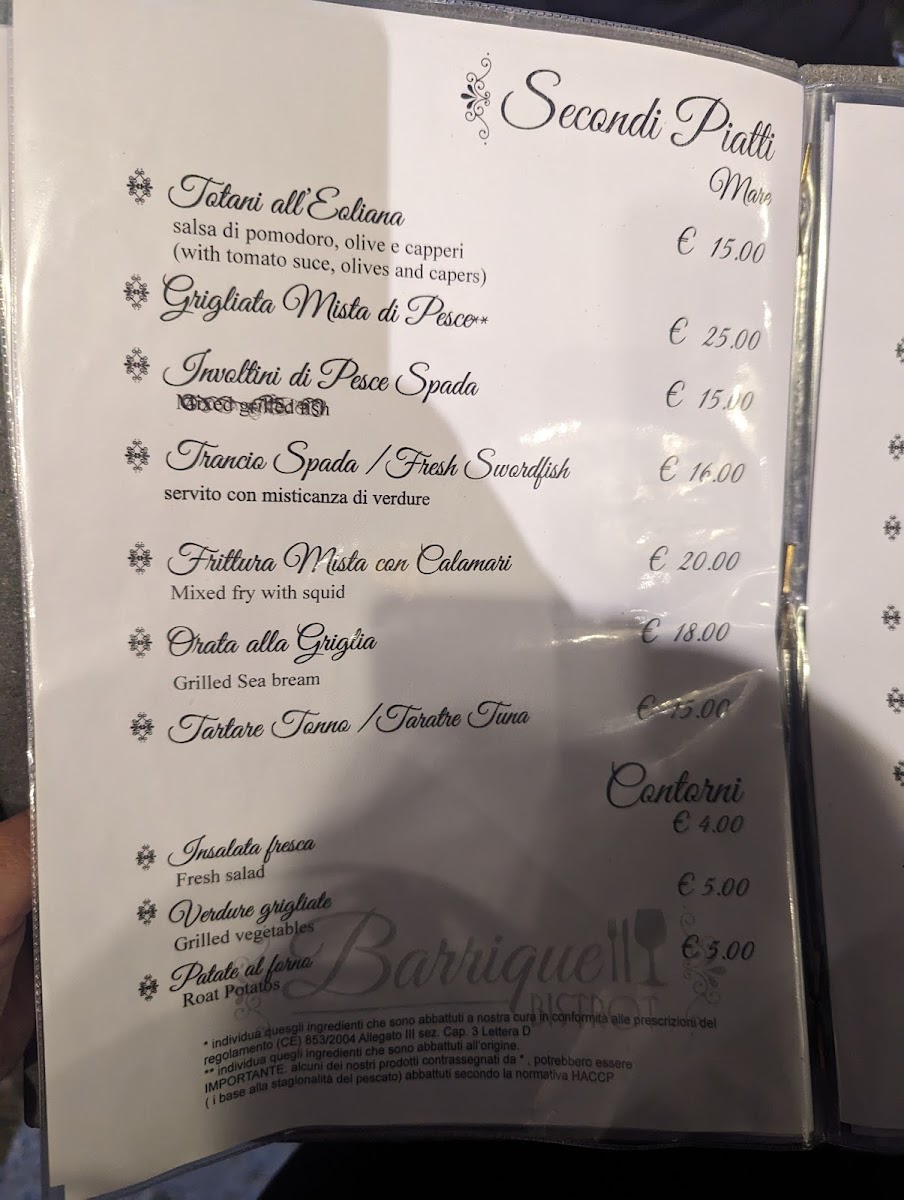 Secondi Piatti
Mare
Totani all'Eoliana
€ 15.00
salsa di pomodoro, olive e capperi
(with tomato suce, olives and capers)
Grigliata Mista di Pesce**
€ 25.00
Involtini di Pesce Spada
€ 15.00
Mixed grilled fish
Trancio Spada / Fresh Swordfish
€ 16.00
servito con misticanza di verdure
Frittura Mista con Calamari
€ 20.00
Mixed fry with squid
Orata alla Griglia
€ 18.00
Grilled Sea bream
Tartare Tonno / Taratre Tuna
€ 15.00
Contorni
€ 4.00
Insalata fresca
Fresh salad
€ 5.00
Verdure grigliate
Grilled vegetables
€ 5.00
Patate al forno
Roat Potatos
Barrique
BISTROT
* individua quesgli ingredienti che sono abbattuti a nostra cura in conformità alle prescrizioni del
regolamento (CE) 853/2004 Allegato III sez. Cap. 3 Lettera D
** individua quegli ingredienti che sono abbattuti all'origine.
IMPORTANTE: alcuni dei nostri prodotti contrassegnati da * , potrebbero essere
( i base alla stagionalità del pescato) abbattuti secondo la normativa HACCP